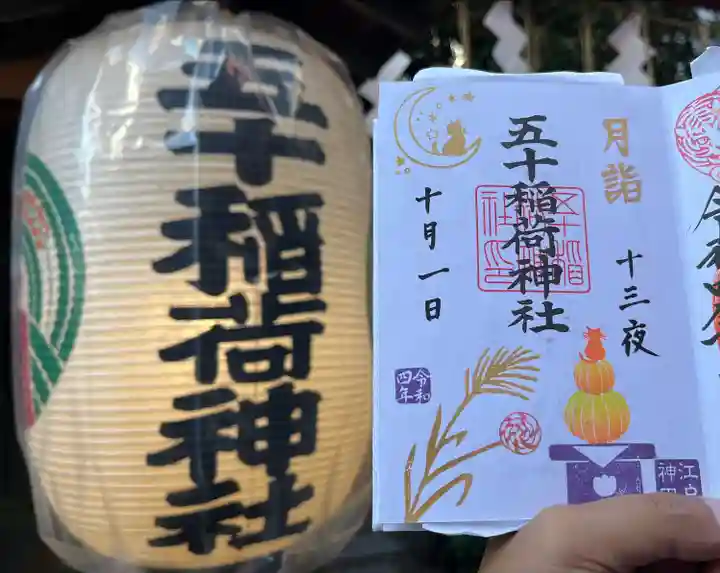 五十稲荷神社
月詣
十三夜
五十稲荷神社
五十稲荷
社印
十月一日
令和
四年
江戸
神田